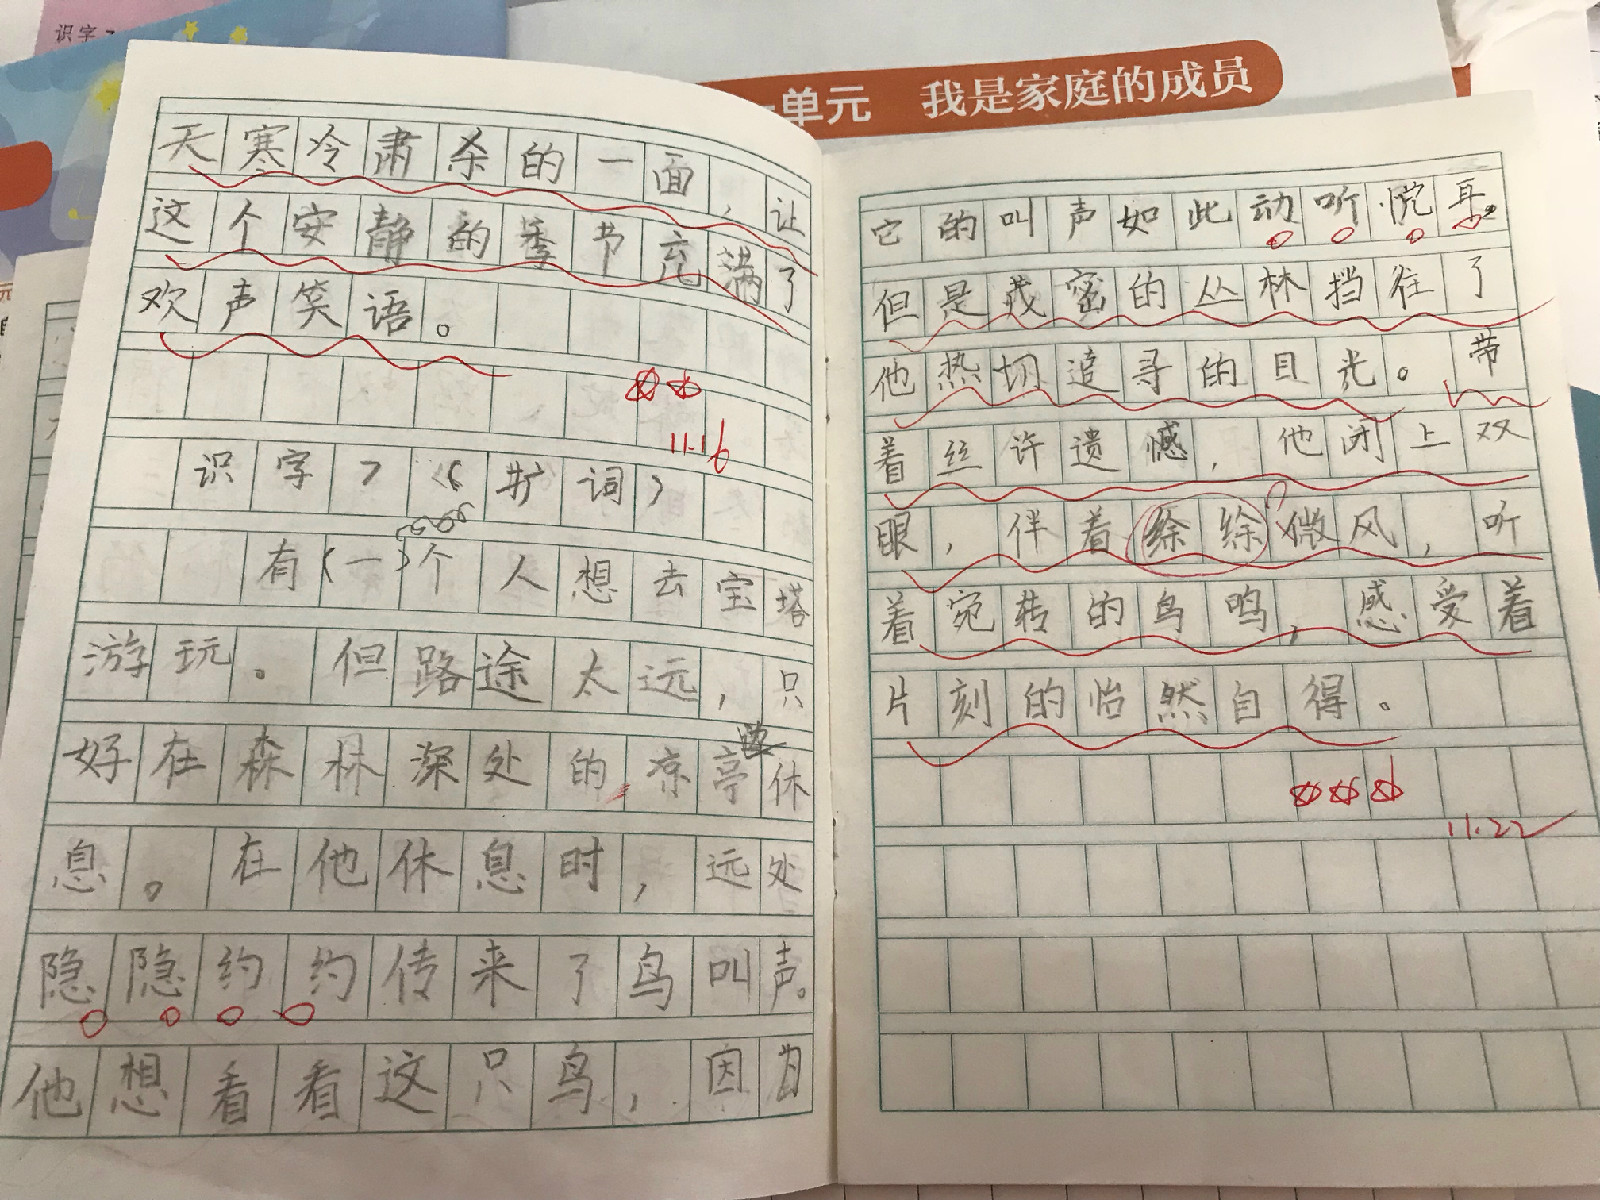 识字7
一单元 我是家庭的成员
天寒冷肃杀的一面，让
这个安静的季节充满了
欢声笑语。
11.16
识字7《扩词》
有(一)个人想去宝塔
游玩。但路途太远，只
好在森林深处的凉亭休
息。在他休息时，远处
隐隐约约传来了鸟叫声。
他想看看这只鸟，因为
它的叫声如此动听悦耳。
但是茂密的丛林挡住了
他热切追寻的目光。带
着丝许遗憾，他闭上双
眼，伴着徐徐微风，听
着宛转的鸟鸣，感受着
片刻的怡然自得。
11.22